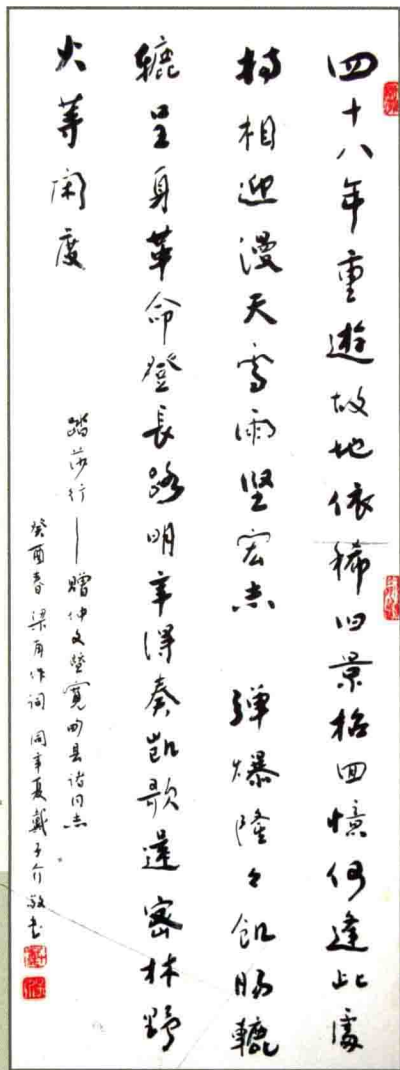 四十八年重遊故地依稀旧景招回憶何逢此處
持相迎漫天雪雨坚宏志 弹爆隆々飢肠轆
轆呈身革命登长路明年得奏凯歌還密林野
火等闲度
踏莎行——赠仲文暨宽甸县诸同志
癸酉春 梁再作词 同年夏戴子介敬书